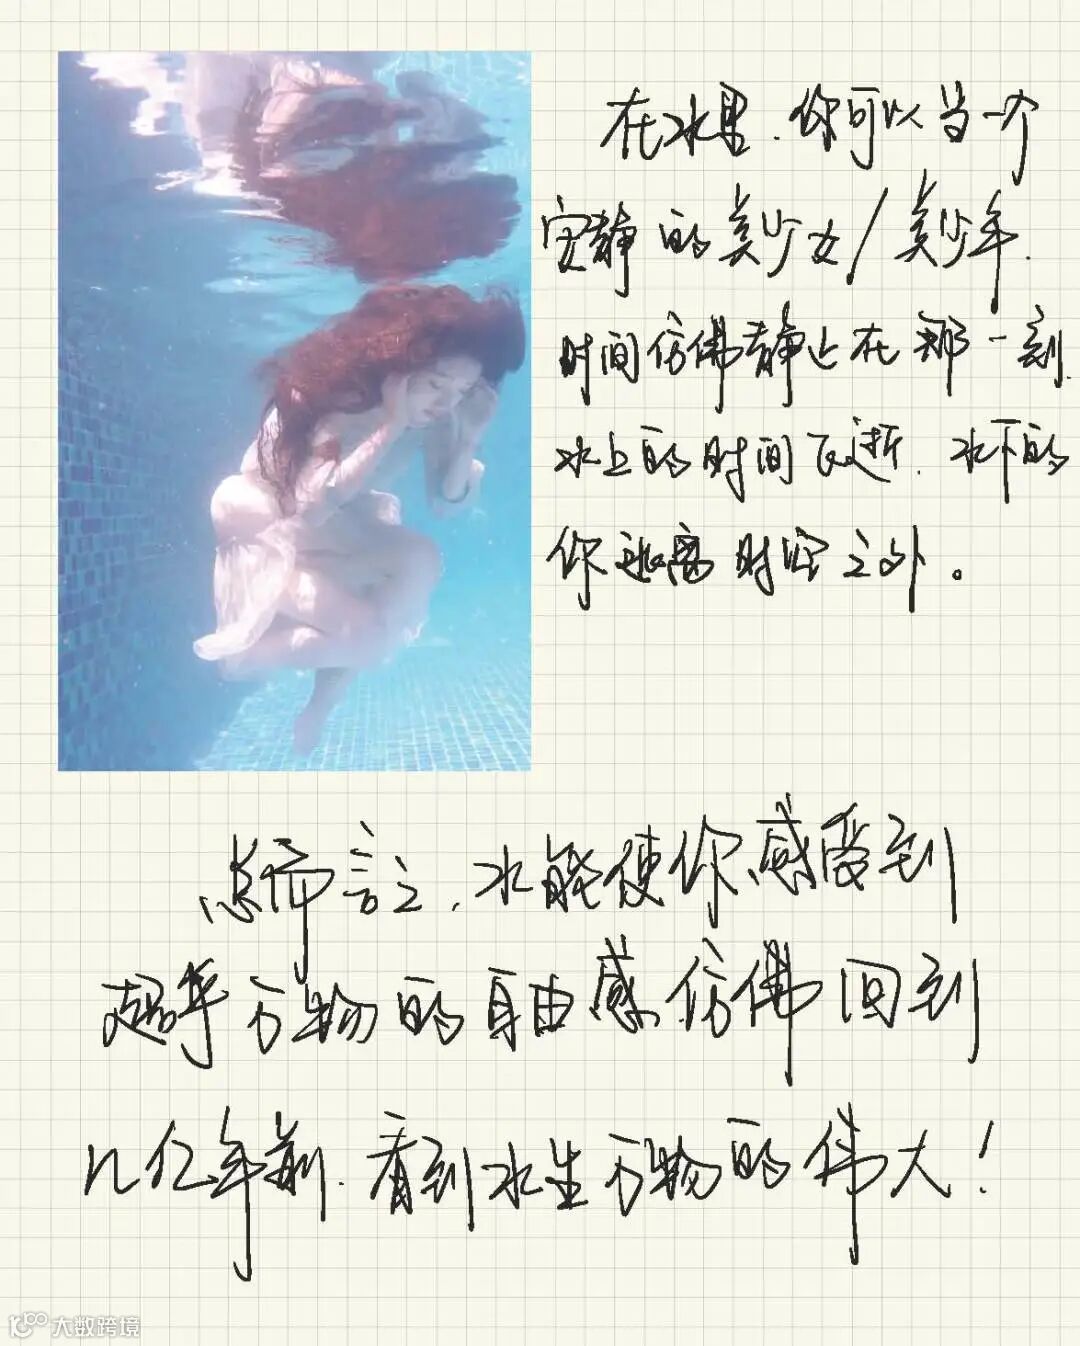 在水里,你可以当一个
安静的美少女/美少年.
时间仿佛静止在那一刻.
水上的时间飞逝.水下的
你逃离时空之外。
总而言之,水能使你感受到
超乎万物的自由感.仿佛回到
几亿年前.看到水生万物的伟大!
大数跨境